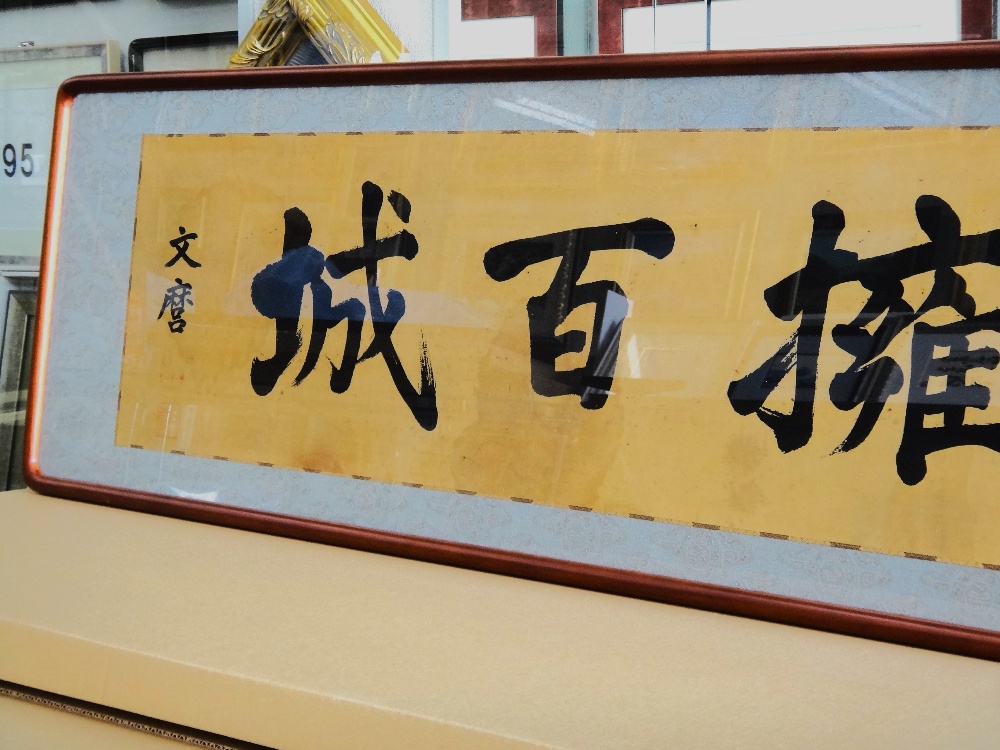 擁百城
文麿
95